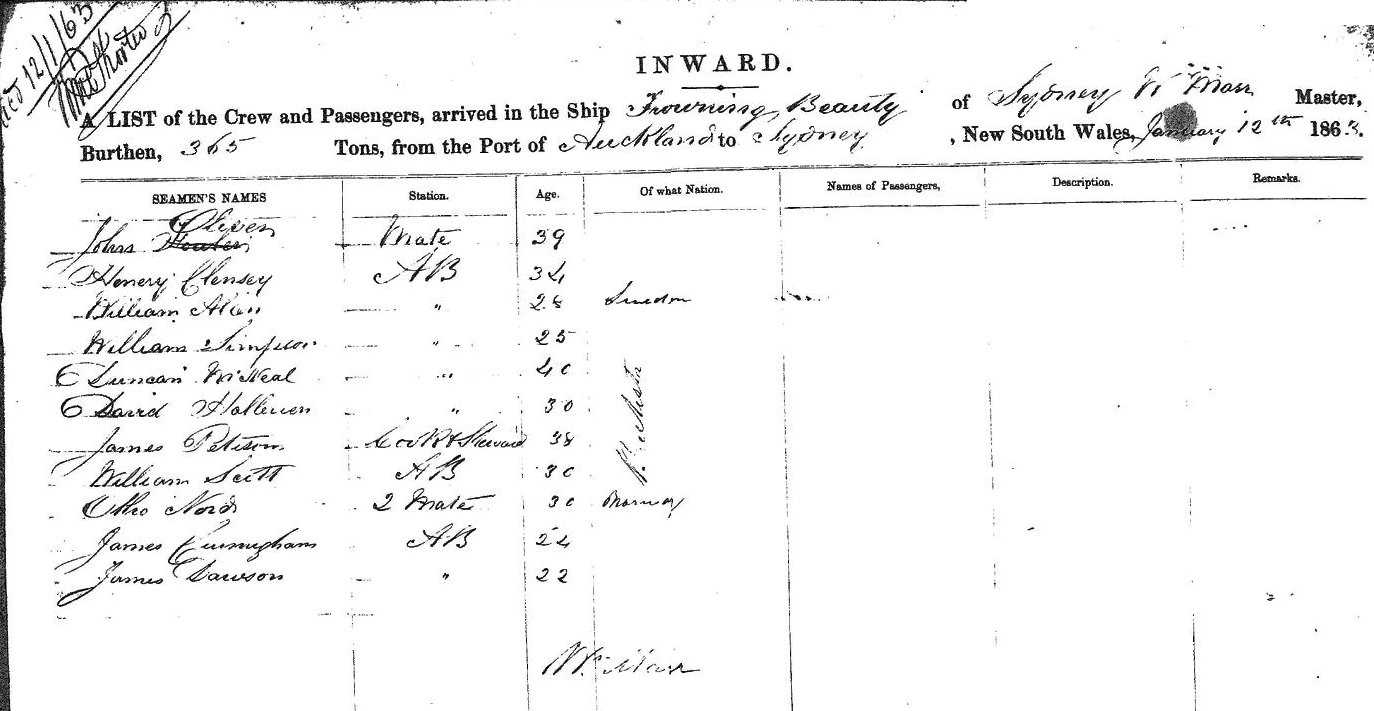 12/1/63
INWARD.
A LIST of the Crew and Passengers, arrived in the Ship Frowning Beauty of Sydney W Marr Master,
Burthen, 365 Tons, from the Port of Auckland to Sydney, New South Wales, January 12th 1863.
SEAMEN'S NAMES Station. Age. Of what Nation. Names of Passengers, Description. Remarks.
Oliver
John Mate 39
Henery Clensey AB 34
William Alan " 28 Sweden
William Simpson " 25
Duncan McNeal " 40
David " 30
James Petison Cook & Steward 38
William Scott AB 30
Otho Nord 2 Mate 30 Norway
James Cunnigham AB 24
James Dawson " 22
Wm Marr